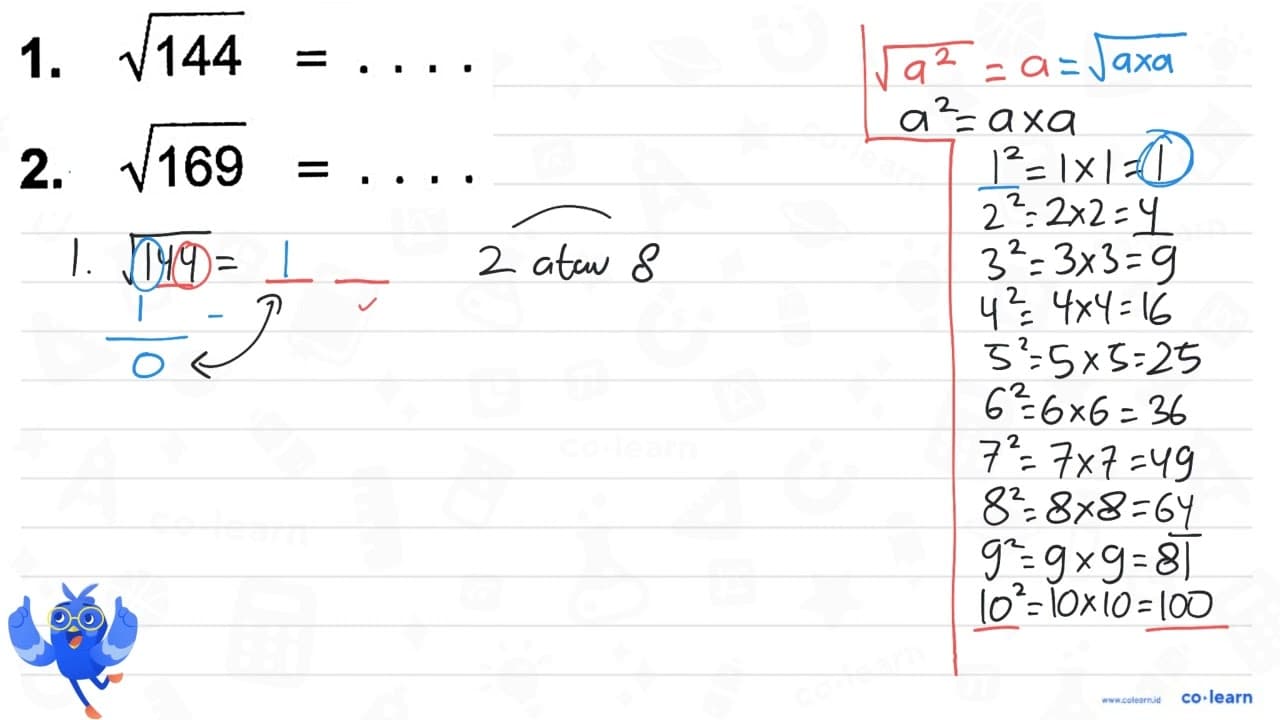 1. √144 = . . . .
2. √169 = . . . .
1. √144 = 1
1 -
0
2 atau 8
√a² = a = √a×a
a² = a×a
1² = 1×1 = 1
2² = 2×2 = 4
3² = 3×3 = 9
4² = 4×4 = 16
5² = 5×5 = 25
6² = 6×6 = 36
7² = 7×7 = 49
8² = 8×8 = 64
9² = 9×9 = 81
10² = 10×10 = 100
www.colearn.id co·learn